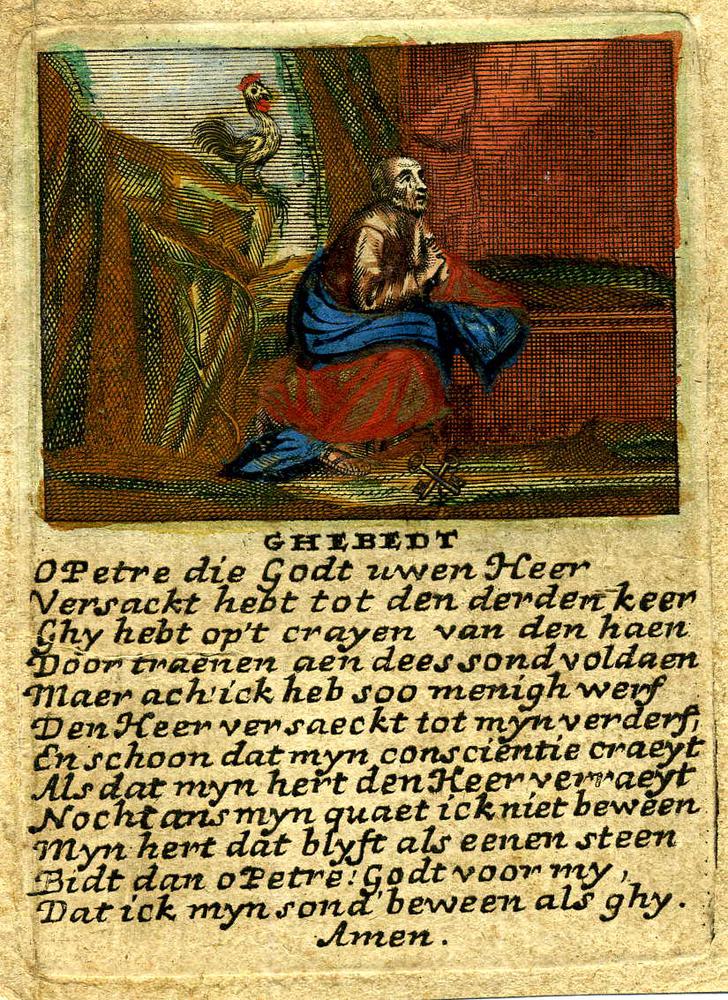 GHEBEDT
O Petre die Godt uwen Heer
Versackt hebt tot den derden keer
Ghy hebt op't crayen van den haen
Door traenen aen dees sond voldaen
Maer ach ick heb soo menigh werf
Den Heer versaeckt tot myn verderf,
En schoon dat myn consciëntie craeyt
Als dat myn hert den Heer verraeyt
Nochtans myn quaet ick niet beween
Myn hert dat blyft als eenen steen
Bidt dan o Petre! Godt voor my,
Dat ick myn sond' beween als ghy.
Amen.